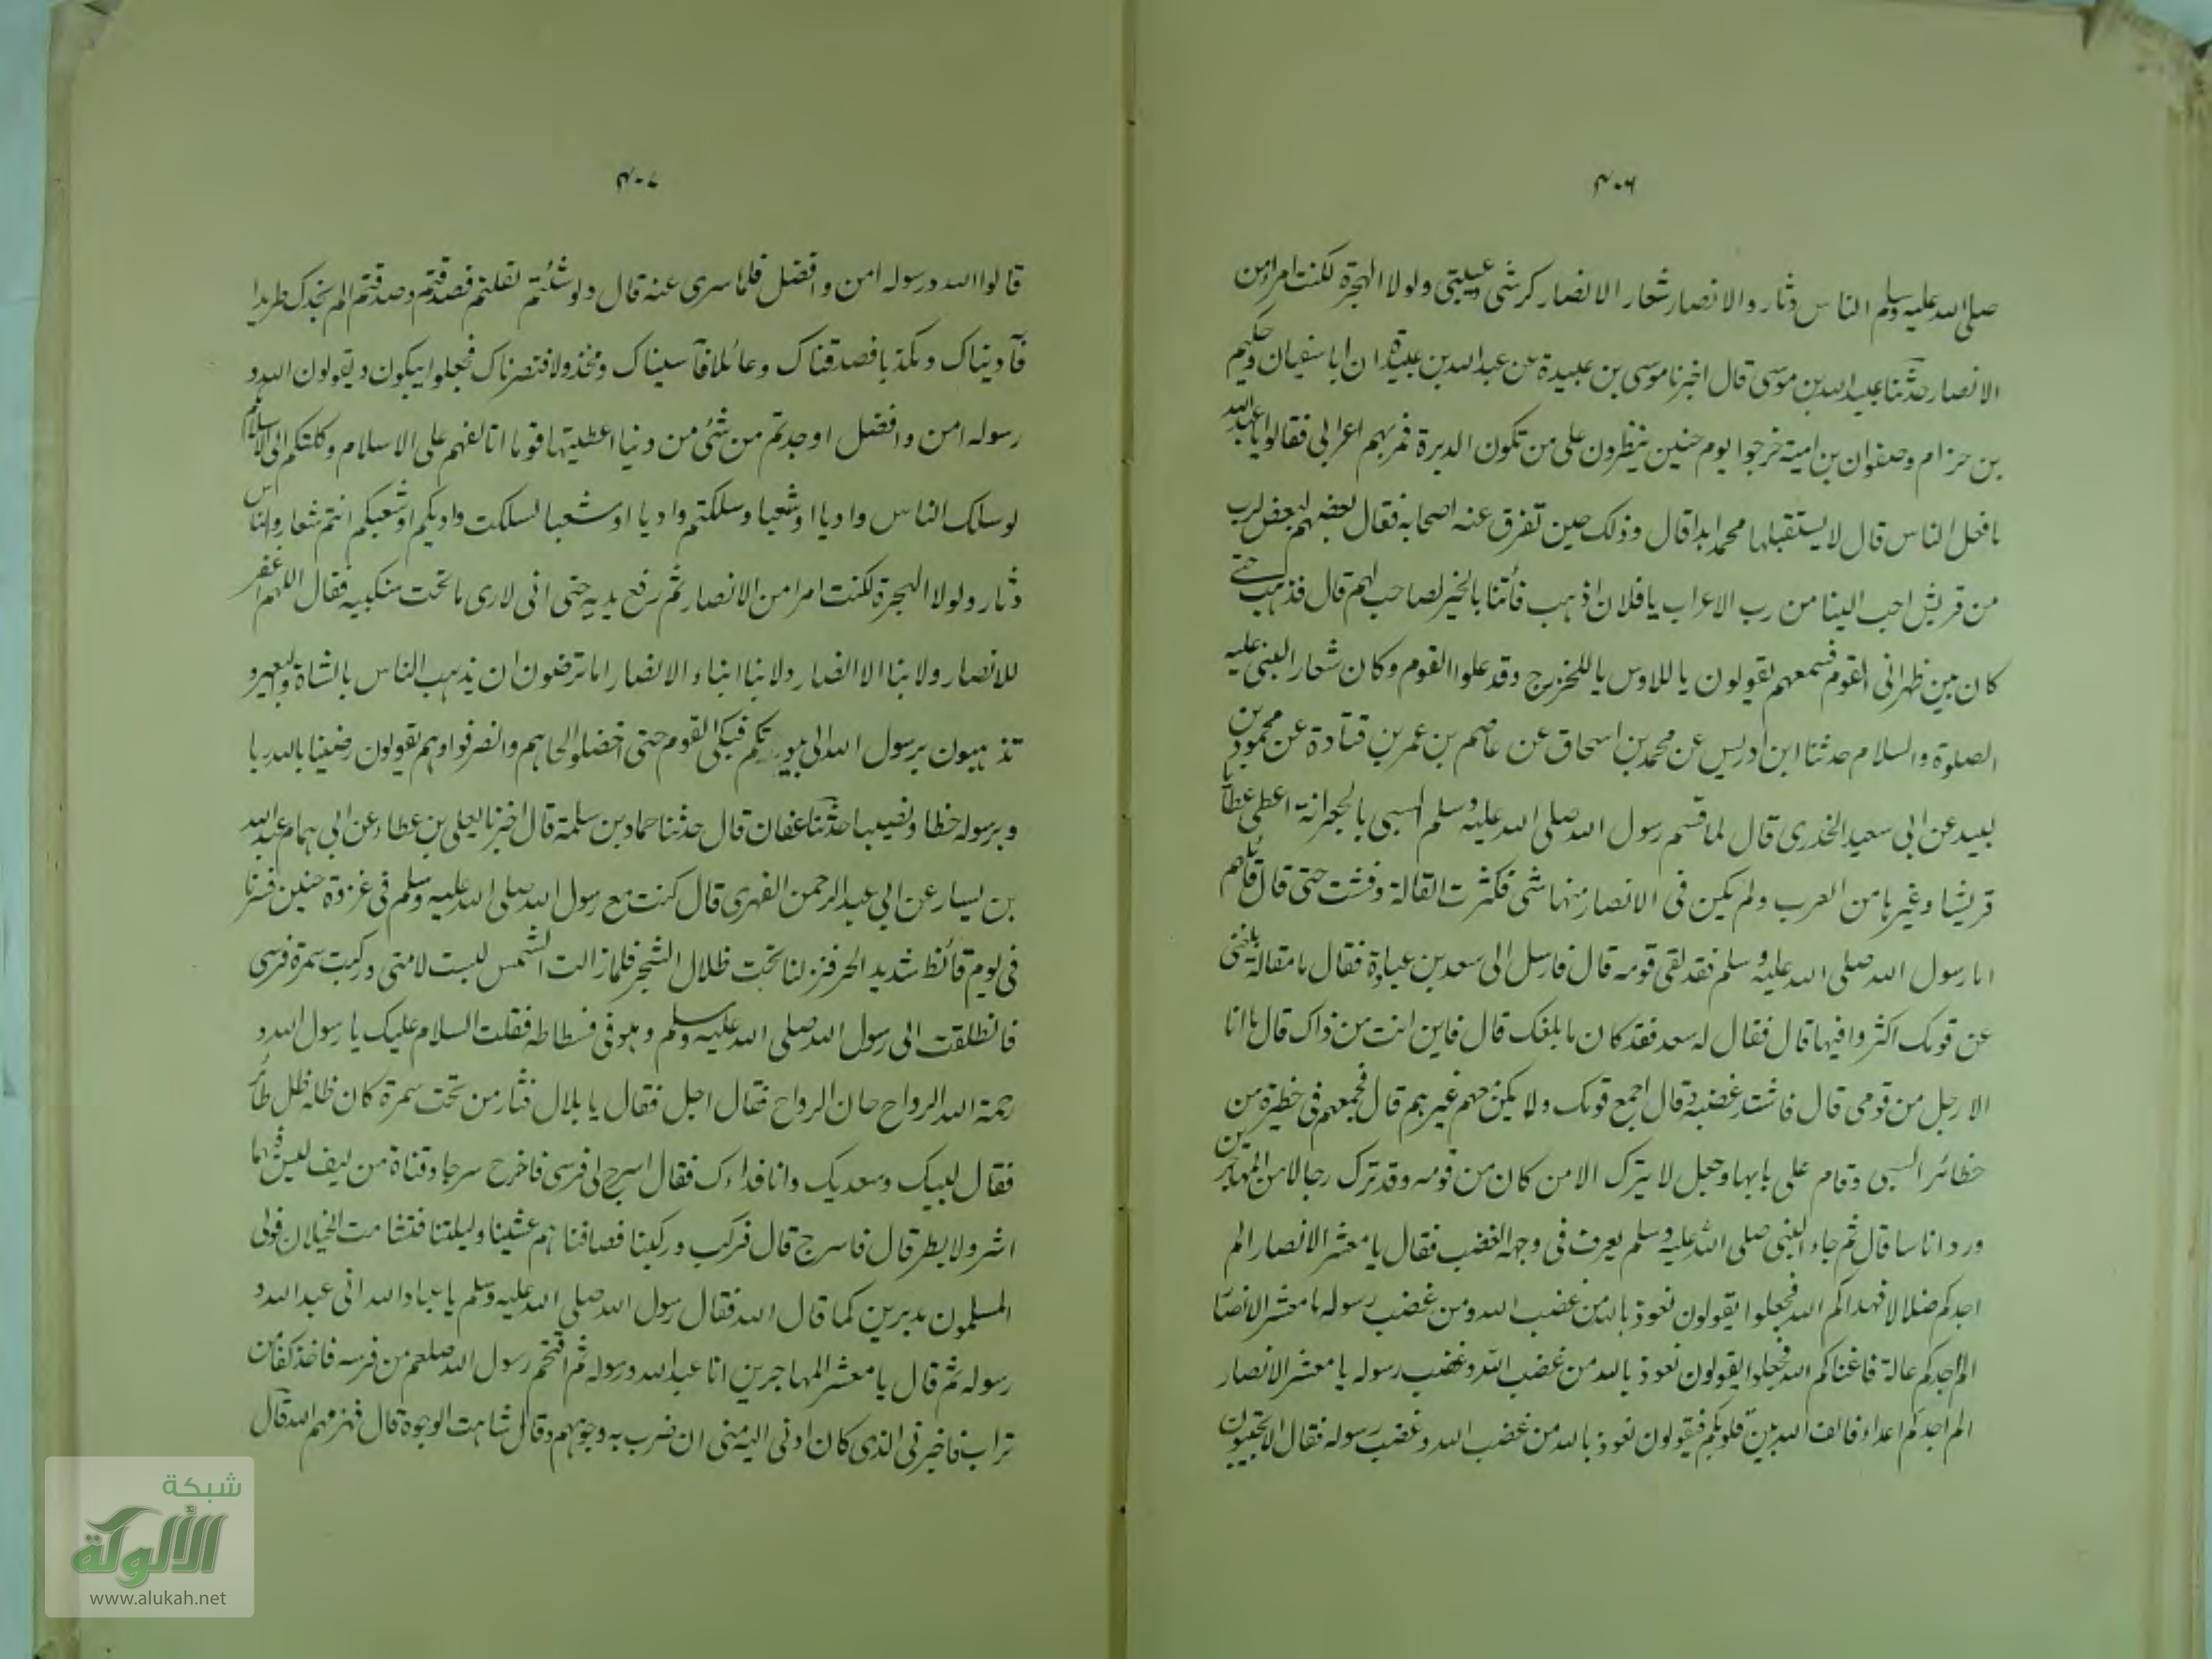 ٤٠٦
صلى الله عليه وسلم الناس دثار والانصار شعار الانصار كرشى وعيبتى ولولا الهجرة لكنت امرأ من
الانصار حدثنا عبيد الله بن موسى قال اخبرنا موسى بن عبيدة عن عبد الله بن عبيدة ان ابا سفيان وحكيم
بن حزام وصفوان بن امية خرجوا يوم حنين ينظرون على من تكون الدبرة فمر بهم اعرابى فقالوا يا عبد الله
ما فعل الناس قال لا يستقبلها محمد ابدا قال وذلك حين تفرق عنه اصحابه فقال بعضهم لبعض لرب
من قريش احب الينا من رب الاعراب يا فلان اذهب فأتنا بالخبر لصاحب لهم قال فذهب حتى
كان بين ظهرانى القوم فسمعهم يقولون يا للاوس يا للخزرج وقد علوا القوم وكان شعار النبى عليه
الصلوة والسلام حدثنا ابن ادريس عن محمد بن اسحاق عن عاصم بن عمر بن قتادة عن محمود بن
لبيد عن ابى سعيد الخدرى قال لما قسم رسول الله صلى الله عليه وسلم السبى بالجعرانة اعطى عطايا
قريشا وغيرها من العرب ولم يكن فى الانصار منها شى فكثرت القالة وفشت حتى قال قائلهم
اما رسول الله صلى الله عليه وسلم فقد لقى قومه قال فارسل الى سعد بن عبادة فقال ما مقالة بلغنى
عن قومك اكثروا فيها قال فقال له سعد فقد كان ما بلغك قال فاين انت من ذاك قال ما انا
الا رجل من قومى قال فاشتد غضبه وقال اجمع قومك ولا يكن معهم غيرهم قال فجمعهم فى حظيرة من
حظائر السبى وقام على بابها وجعل لا يترك الا من كان من قومه وقد ترك رجالا من المهاجرين
ورد اناسا قال ثم جاء النبى صلى الله عليه وسلم يعرف فى وجهه الغضب فقال يا معشر الانصار الم
اجدكم ضلالا فهداكم الله فجعلوا يقولون نعوذ بالله من غضب الله ومن غضب رسوله يا معشر الانصار
الم اجدكم عالة فاغناكم الله فجعلوا يقولون نعوذ بالله من غضب الله وغضب رسوله يا معشر الانصار
الم اجدكم اعداء فالف الله بين قلوبكم فيقولون نعوذ بالله من غضب الله وغضب رسوله فقال الا تجيبون
٤٠٧
قالوا الله ورسوله امن وافضل فلما سرى عنه قال ولو شئتم لقلتم فصدقتم وصدقتم الم نجدك طريدا
فآويناك ومكذبا فصدقناك وعائلا فآسيناك ومخذولا فنصرناك فجعلوا يبكون ويقولون الله و
رسوله امن وافضل اوجدتم من شئ من دنيا اعطيتها قوما اتالفهم على الاسلام وكلتكم الى الاسلام
لو سلك الناس واديا او شعبا وسلكتم واديا او شعبا لسلكت واديكم او شعبكم انتم شعار والناس
دثار ولولا الهجرة لكنت امرا من الانصار ثم رفع يديه حتى انى لارى ما تحت منكبيه فقال اللهم اغفر
للانصار ولابناء الانصار ولابناء ابناء الانصار اما ترضون ان يذهب الناس بالشاة والبعير و
تذهبون برسول الله الى بيوتكم فبكى القوم حتى اخضلوا لحاهم وانصرفوا وهم يقولون رضينا بالله ربا
وبرسوله حظا ونصيبا حدثنا عفان قال حدثنا حماد بن سلمة قال اخبرنا يعلى بن عطاء عن ابى همام عبد الله
بن يسار عن ابى عبد الرحمن الفهرى قال كنت مع رسول الله صلى الله عليه وسلم فى غزوة حنين فسرنا
فى يوم قائظ شديد الحر فنزلنا تحت ظلال الشجر فلما زالت الشمس لبست لامتى وركبت سمرة فرسى
فانطلقت الى رسول الله صلى الله عليه وسلم وهو فى فسطاطه فقلت السلام عليك يا رسول الله و
رحمة الله الرواح حان الرواح فقال اجل فقال يا بلال فثار من تحت سمرة كان ظله ظل طائر
فقال لبيك وسعديك وانا فداءك فقال اسرج لى فرسى فاخرج سرجا دفتاه من ليف ليس فيهما
اشر ولا بطر قال فاسرج قال فركب وركبنا فصاففناهم عشيتنا وليلتنا فتشامت الخيلان فولى
المسلمون مدبرين كما قال الله فقال رسول الله صلى الله عليه وسلم يا عباد الله انى عبد الله و
رسوله ثم قال يا معشر المهاجرين انا عبد الله ورسوله ثم اقتحم رسول الله صلعم من فرسه فاخذ كفا من
تراب فاخبرنى الذى كان ادنى اليه منى ان ضرب به وجوههم وقال شاهت الوجوه قال فهزمهم الله قال
شبكة
الألوكة
www.alukah.net